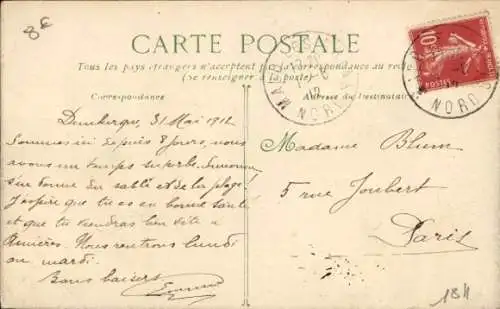 8€
CARTE POSTALE
Tous les pays étrangers n'acceptent pas la correspondance au recto
(Se renseigner à la poste)
Correspondance
Adresse du Destinataire
Dunkerque, 31 Mai 1912
Sommes ici depuis 8 jours, nous
avons un temps superbe.
s'en donne du sable et de la plage!
J'espère que tu es en bonne santé
et que tu viendras bien vite à
Asnières. Nous rentrons lundi
ou mardi.
Bons baisers
Madame Blum
5 rue Joubert
Paris
MA
12
NORD
10
POSTES
NORD
184